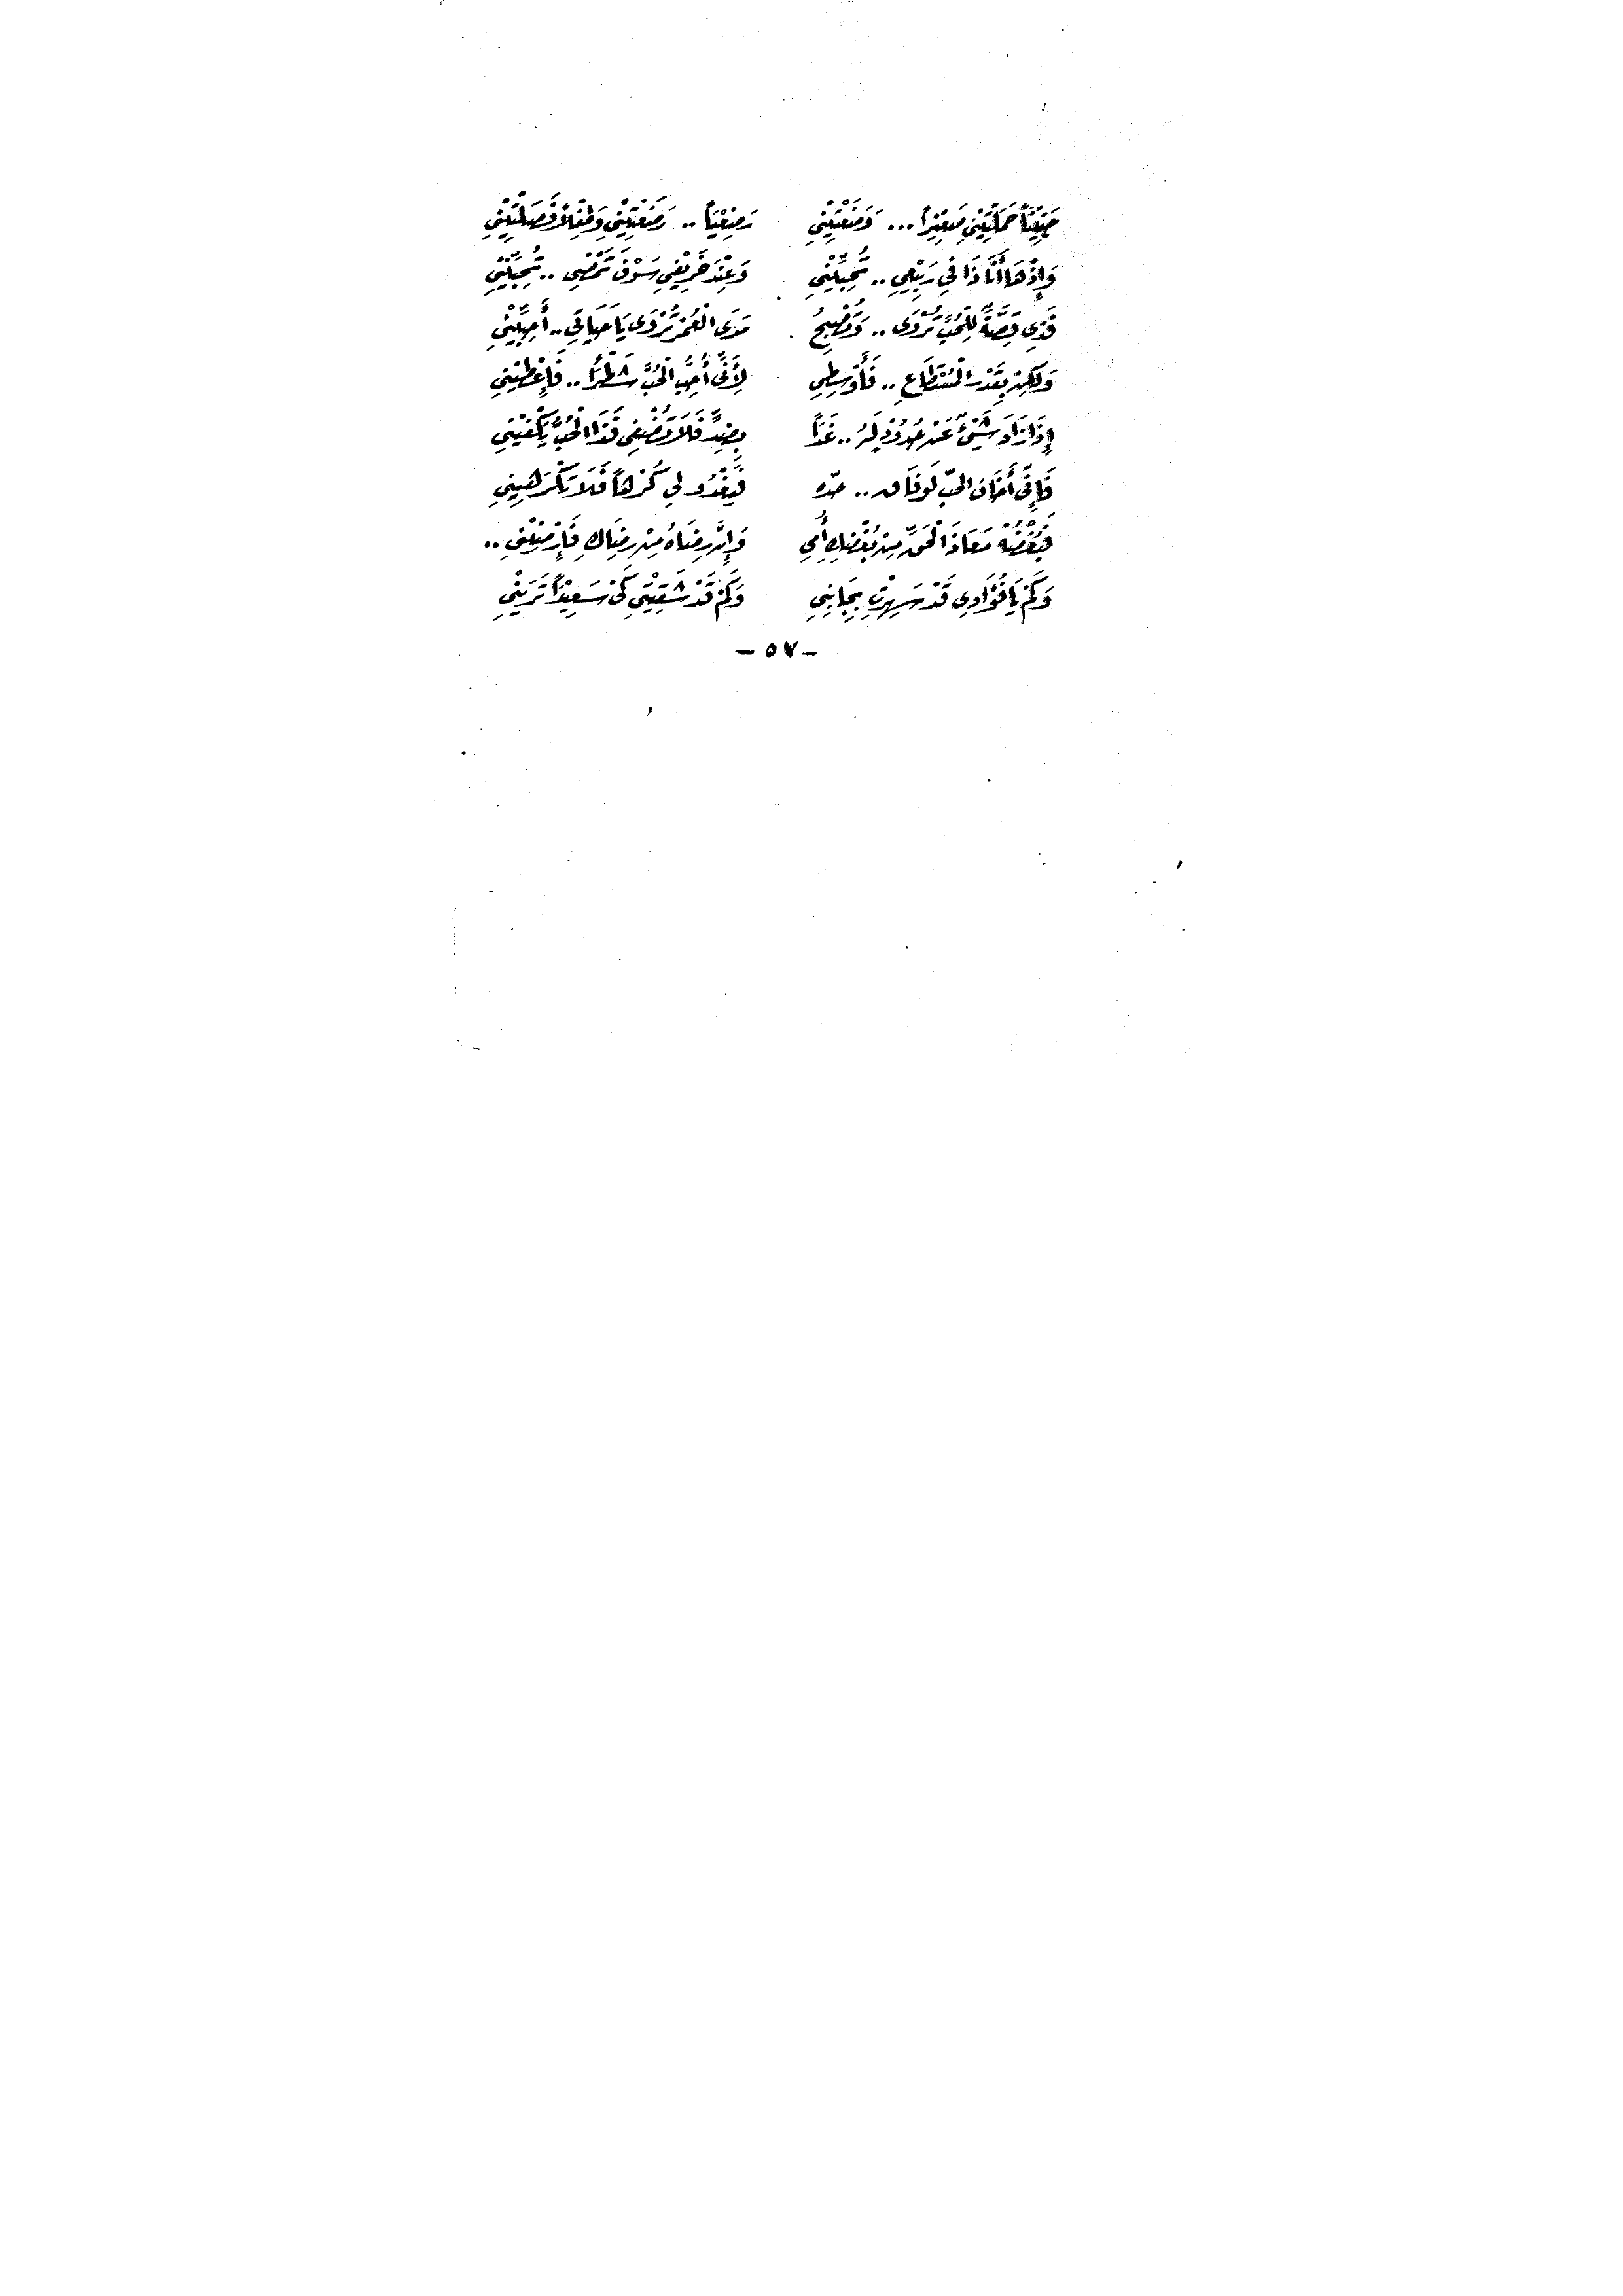 جَنِيْنَاً حَمَلْتِيْنِي صَغِيْرَاً ... وَضَعْتِيْنِي رَضِيْعَاً .. رَضَعْتِيْنِي وَطِفْلاً فَصَلْتِيْنِي
وَإِذْ هَا أَنَا ذَا فِي رَبِيْعِي .. تُحِبِّيْنِي وَعِنْدَ خَرِيْفِي سَوْفَ تَمْضِي .. تُحِبِّيْنِي
فَذِي قِصَّةٌ لِلْحُبِّ تُرْوَى .. وَتُصْبِحُ مَدَى الْعُمْرِ تُرْوَى يَا حَيَاتِي .. أَحِبِّيْنِي
وَلَكِنْ بِقَدْرِ الْمُسْتَطَاعِ .. فَأَوْسِطِي لِأَنِّي أُحِبُّ الْحُبَّ شَطْرَاً .. فَإِعْطِيْنِي
إِذَا زَادَ شَيْئٌ عَنْ حُدُوْدٍ لَهُ .. غَدَاً بِضِدٍّ فَلَا تُضْفِي فَذَا الْحُبُّ يَكْفِيْنِي
فَإِنِّي أَخَافُ الحبّ لَو فَاق .. حدّه لَيَغْدُو لي كُرْهَاً فَلَا تَكْرَهِيْنِي
فَبُغْضُهُ مَعَاذَ الْحَقِّ مِنْ بُغْضِكِ أُمِّي وَإِنَّ رِضَاهُ مِنْ رِضَاكِ فَإِرْضِيْنِي ..
وَكَمْ يَا فُؤَادِي قَدْ سَهِرْتِ بِجَانِبِي وَكَمْ قَدْ شَقِيْتِي كَيْ سَعِيْدَاً تَرَيْنِي
- ٥٧ -